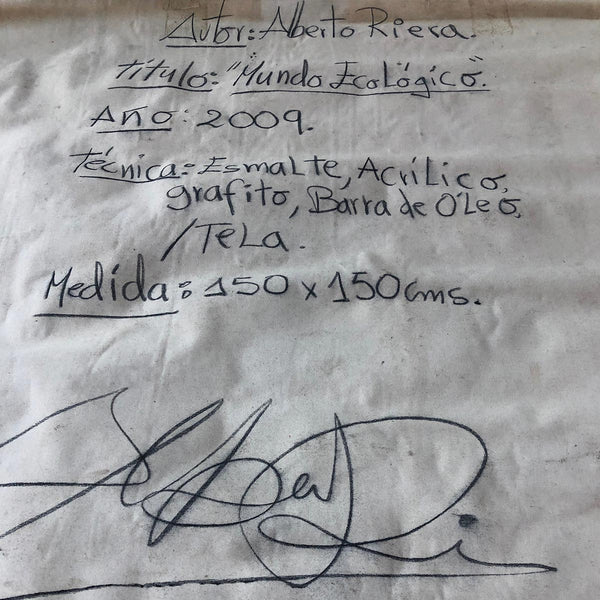 Autor: Alberto Riera.
Título: "Mundo Ecológico".
Año: 2009.
Técnica: Esmalte, Acrílico,
grafito, Barra de Óleo,
/Tela.
Medida: 150 x 150cms.